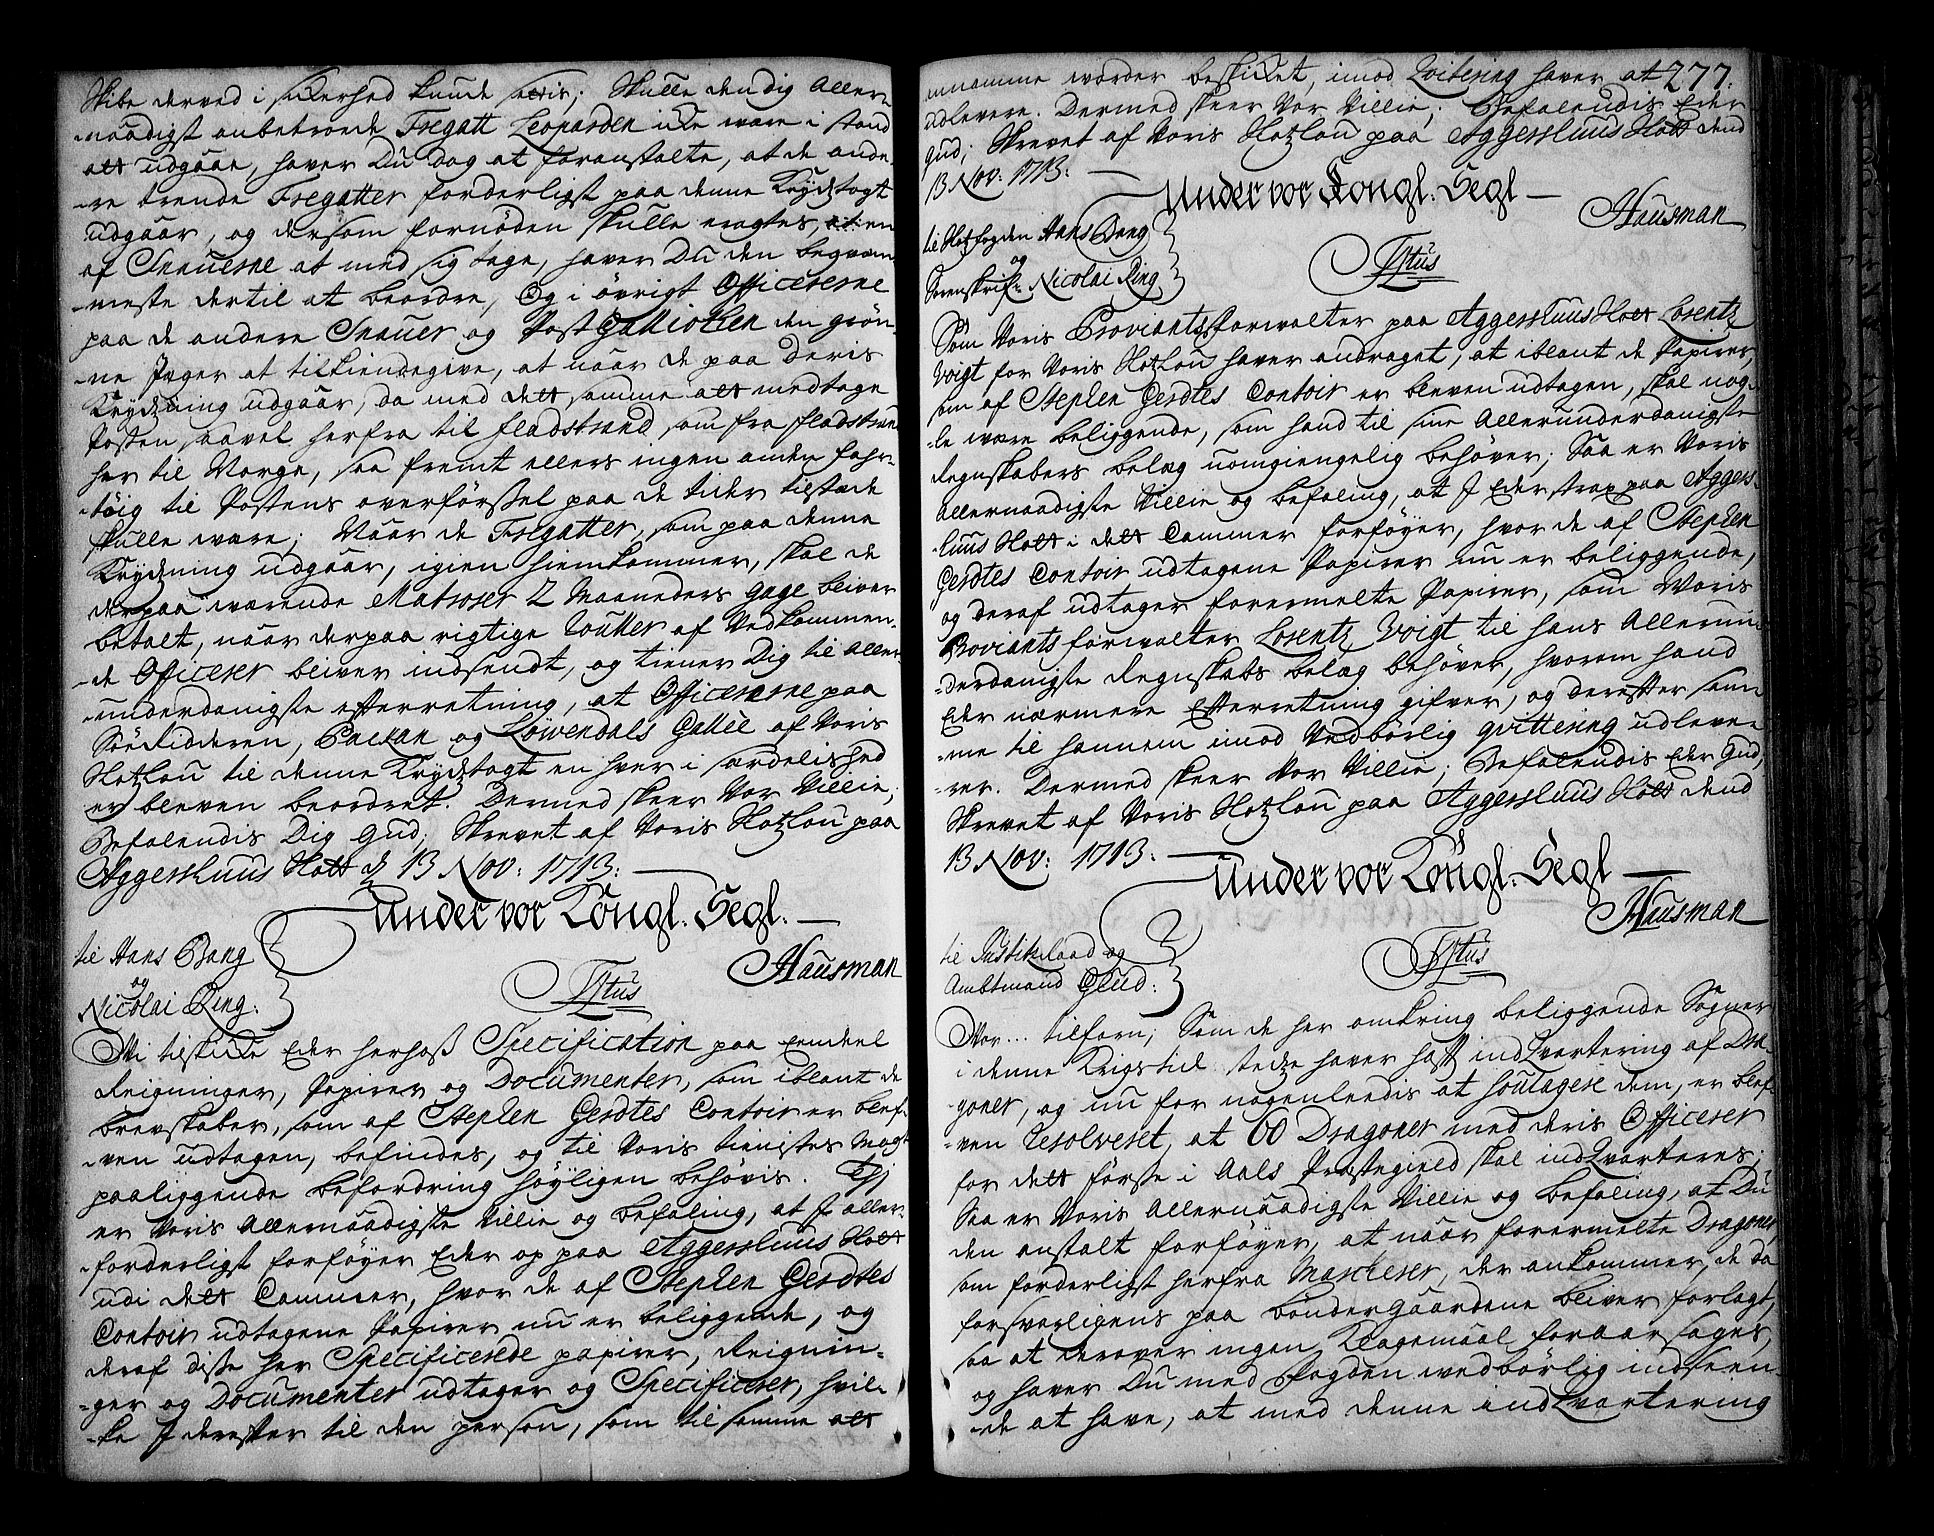 Skibe derved i sickerhed kunde settis; Skulle den dig Aller-
naadigst anbetroede Fregatt Leoparden icke være i stand
att udgaae, haver Du dog at foranstalte, at de ande-
-re trende Fregatter forderligst paa denne Krydstogt
udgaar, og dersom fornøden skulle eragtes, at en
af Snauerne at med sig tage, haver Du den beqvem-
meste dertil at beordre, Og i øvrigt Officererne
paa de andre Snauer og Post Galliotten den grøn-
-ne Jæger at tilkiendegive, at naar de paa deris
Krydsning udgaar, da med dett samme att medtage
Posten saavel herfra til fladstrand, som fra fladstrand
her til Norge, saa fremt ellers ingen anden fahr-
-tøig til Postens overførssel paa de tider tilstæde
skulle være; Naar de Fregatter, som paa denne
Krydsning udgaar, igien hiemkommer, skal de
derpaa værende Matroser 2 Maaneders gage bliver
betalt, naar derpaa rigtige Roller af Vedkommen-
-de Officerer bliver indsendt, og tiener Dig til Aller-
-underdanigste efterretning, at Officererne paa
Søe Ridderen, Packan og Løwendals Gallei af Voris
Slotzlou til denne Krydstogt en hver i særdelished
er bleven beordret. Dermed skeer Vor Villie;
Befalendis Dig Gud; Skrevet af Voris Slotzlou paa
Aggershuus Slott d 13 Nov: 1713:
Under vor Kongl. Segl.
til Hans Bang
og
Nicolai Ring.
Hausman
Tjtus
Vi tilskicke Eder herhoss Specification paa eendeel
Reigninger, Papirer og Documenter, som iblant de
brevskaber, som af Stephen Gerdtes Contoir er blef-
-ven udtagen, befindes, og til Voris tienistes Magt
paaliggende befordring høyligen behøvis. Thj
er Voris Allernaadigste Villie og befaling, at I aller-
-forderligst forføyer Eder op paa Aggershuus Slott
udi dett Cammer, hvor de af Stephen Gerdtes
Contoir udtagene Papirer nu er beliggende, og
deraf disse her Specificerede papirer, Reignin-
-ger og Documenter udtager og Specificerer, hvil-
-ke I derefter til den person, som til samme att
annamme vorder beskicket, imod Qvitering haver at 277.
udlevere. Dermed skeer Vor Villie; Befalendis Eder
gud; Skrevet af Voris Slotzlou paa Aggershuus Slott dend
13 Nov: 1713:
Under vor Kongl. Segl
Hausman
til Slotzfogden Hans Bang
og
Sorenskrifr Nicolai Ring
Tjtus
Som Voris Proviantsforwalter paa Aggershuus Slott Lorentz
Voigt for Voris Slotzlou haver andraget, at iblant de Papirer,
som af Stephen Gerdtes Contoir er bleven udtagen, skal nog-
-le være beliggende, som hand til sine Allerunderdanigste
Regnskabers belæg uomgiengelig behøver; Saa er Voris
allernaadigste Villie og befaling, at I Eder strax paa Aggers-
-huus Slott i dett Cammer forføyer, hvor de af Stephen
Gerdtes Contoir udtagene Papirer nu er beliggende,
og deraf udtager forermelte Papirer, som Voris
Proviantsforwalter Lorentz Voigt til hans Allerun-
-derdanigste Regnskabs belæg behøver, hvorom hand
Eder nærmere Efterretning gifver, og derefter sam-
-me til hannem imod Vedbørlig qvittering udleve-
-rer. Dermed skeer Vor Villie; Befalendis Eder Gud,
Skrevet af Voris Slotzlou paa Aggershuus Slott dend
13 Nov: 1713:
Under vor Kongl. Segl
Hausman
til Justitzraad og
Ambtmand Glud:
Tjtus
Vor... tilforn; Som de her omkring beliggende Sogner
i denne Krigstid stedze haver hafft indqvartering af Dra-
-goner, og nu for nogenleedis at soulagere dem, er blef-
-ven resolveret, at 60 Dragoner med deris Officerer
for dett første i Aals Præstegield skal indqvarteres;
Saa er Voris Allernaadigste Villie og befaling, at Du
den anstalt forføyer, at naar forermelte Dragoner,
som forderligst herfra Marcherer, der ankommer, de da
forsvarligens paa bøndergaardene bliver forlagt,
saa at derover ingen Klagemaal foraarsages,
og haver Du med Fogden vedbørlig indseen-
-de at have, at med denne indqvartering